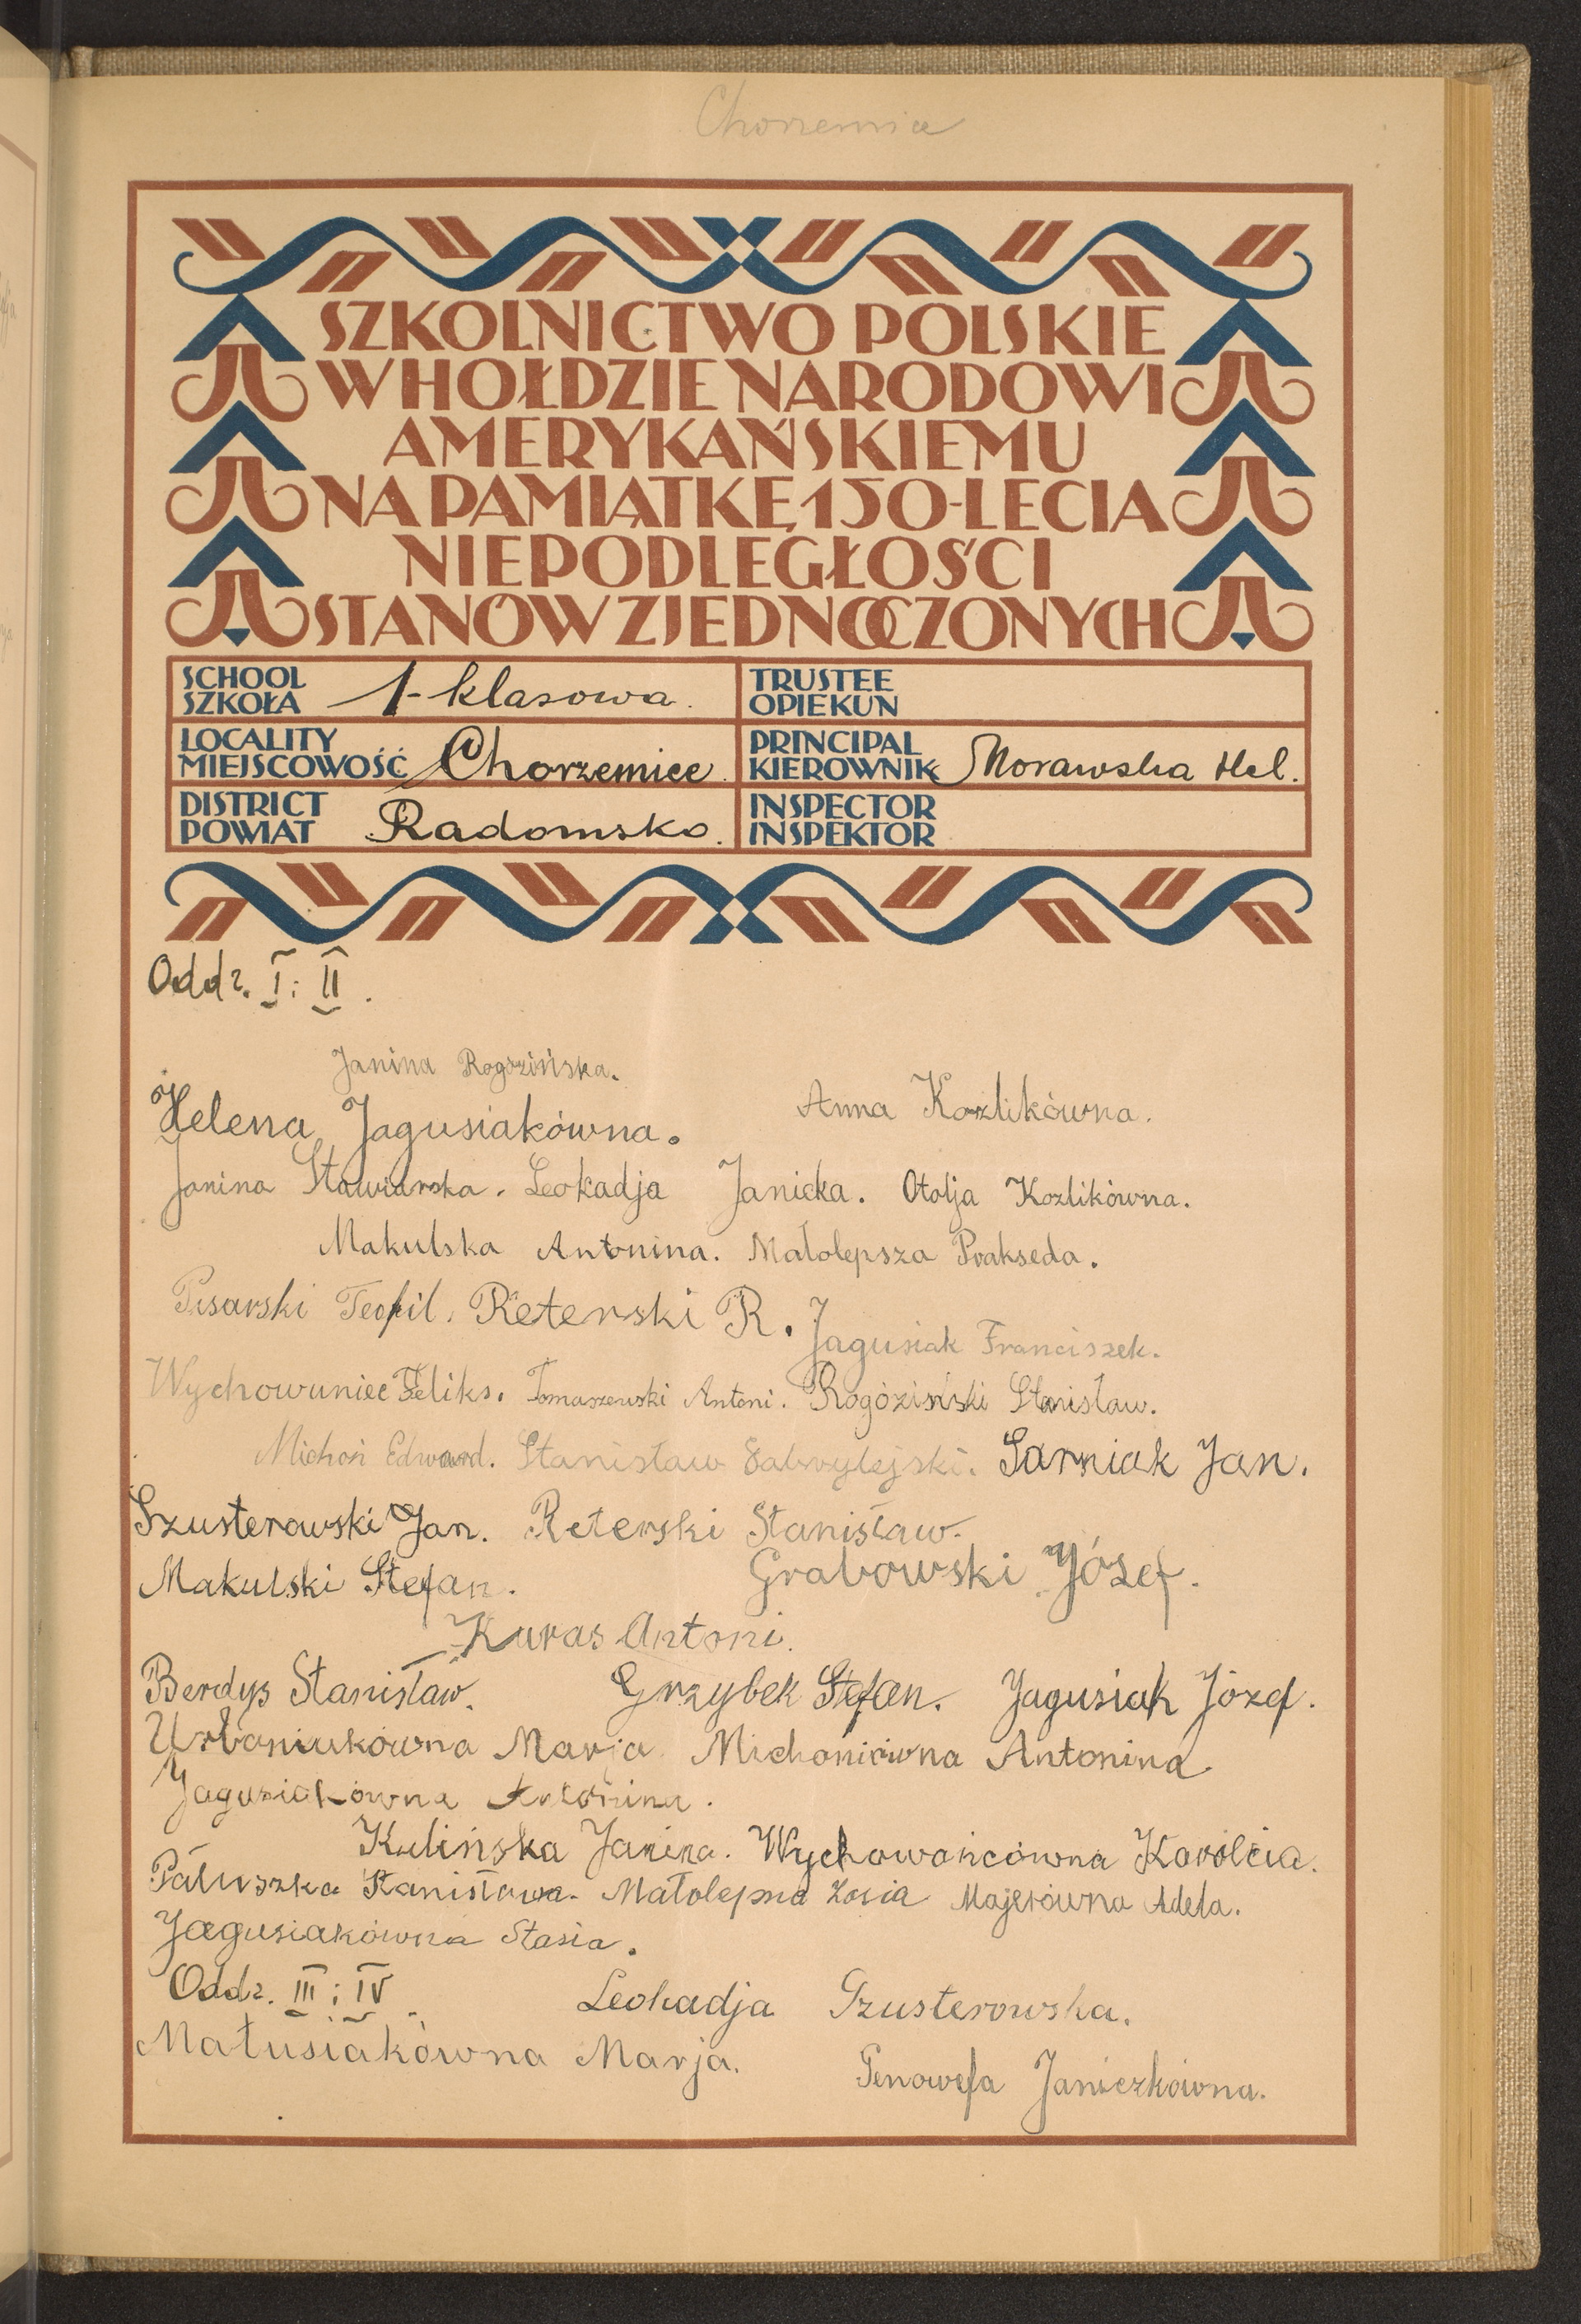 Chorzemice
SZKOLNICTWO POLSKIE
W HOŁDZIE NARODOWI
AMERYKAŃSKIEMU
NA PAMIĄTKĘ 150-LECIA
NIEPODLEGŁOŚCI
STANÓW ZJEDNOCZONYCH
SCHOOL
SZKOŁA 1-klasowa.
TRUSTEE
OPIEKUN
LOCALITY
MIEJSCOWOŚĆ Chorzemice.
PRINCIPAL
KIEROWNIK Morawska Hel.
DISTRICT
POWIAT Radomsko.
INSPECTOR
INSPEKTOR
Oddz. I i II.
Janina Rogozińska.
Helena Jagusiakówna. Anna Kozlikówna.
Janina Stawiarska. Leokadja Janicka. Otolja Kozlikówna.
Makulska Antonina. Małolepsza Prakseda.
Pisarski Teofil. Reterski R. Jagusiak Franciszek.
Wychowuniec Feliks. Tomaszewski Antoni. Rogóziński Stanisław.
Michoń Edward. Stanisław Sarniak Jan.
Szusterowski Jan. Reterski Stanisław.
Makulski Stefan. Grabowski Józef.
Kuras Antoni.
Berdys Stanisław. Grzybek Stefan. Jagusiak Józef.
Urbaniukówna Marja. Michoniówna Antonina
Jagusiakówna Antonina.
Kulińska Janina. Wychowańcówna Karolcia.
Pałuszka Stanisława. Małolepsza Zosia Majerówna Adela.
Jagusiakówna Stasia.
Oddz. III i IV. Leokadja Szusterowska.
Matusiakówna Marja. Genowefa Janiczkówna.